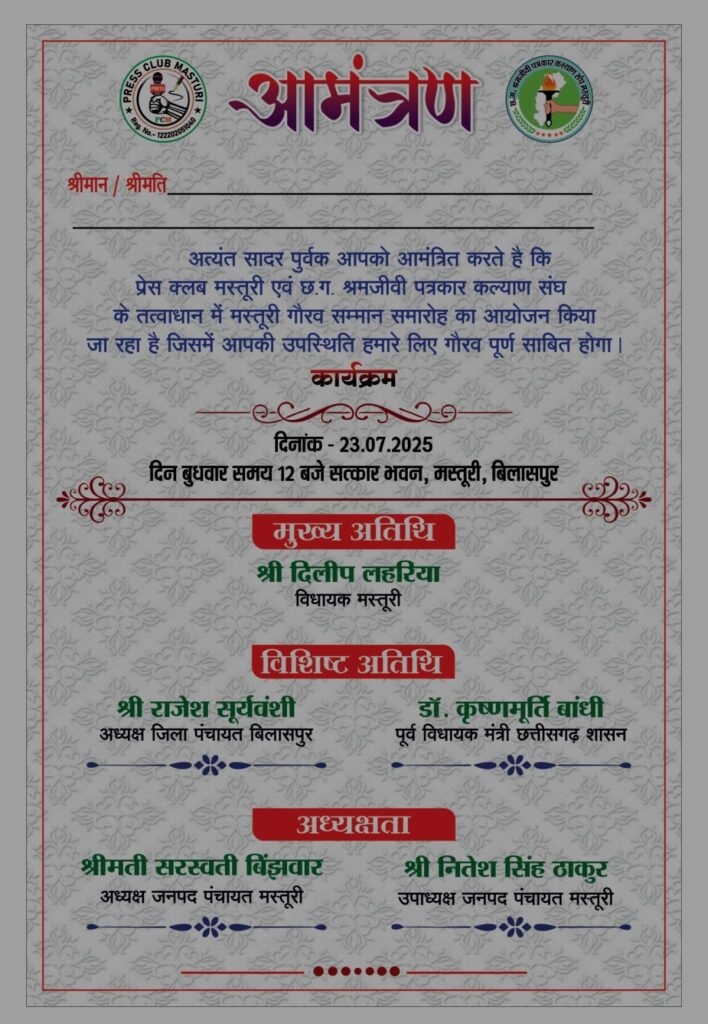 PRESS CLUB MASTURI
PRESS
PCM
Reg. No.- 122202051040
आमंत्रण
छ.ग. श्रमजीवी पत्रकार कल्याण संघ मस्तूरी
श्रीमान / श्रीमति
अत्यंत सादर पुर्वक आपको आमंत्रित करते है कि
प्रेस क्लब मस्तूरी एवं छ.ग. श्रमजीवी पत्रकार कल्याण संघ
के तत्वाधान में मस्तूरी गौरव सम्मान समारोह का आयोजन किया
जा रहा है जिसमें आपकी उपस्थिति हमारे लिए गौरव पूर्ण साबित होगा।
कार्यक्रम
दिनांक - 23.07.2025
दिन बुधवार समय 12 बजे सत्कार भवन, मस्तूरी, बिलासपुर
मुख्य अतिथि
श्री दिलीप लहरिया
विधायक मस्तूरी
विशिष्ट अतिथि
श्री राजेश सूर्यवंशी
अध्यक्ष जिला पंचायत बिलासपुर
डॉ. कृष्णमूर्ति बांधी
पूर्व विधायक मंत्री छत्तीसगढ़ शासन
अध्यक्षता
श्रीमती सरस्वती बिंझवार
अध्यक्ष जनपद पंचायत मस्तूरी
श्री नितेश सिंह ठाकुर
उपाध्यक्ष जनपद पंचायत मस्तूरी